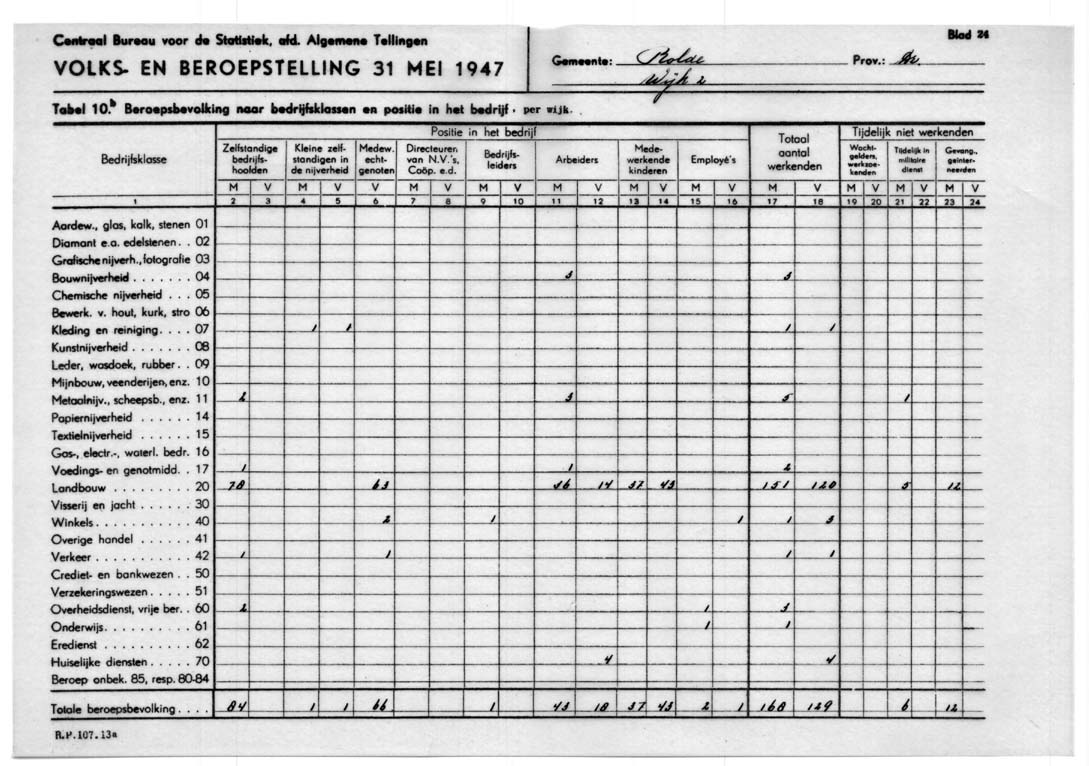 Centraal Bureau voor de Statistiek, afd. Algemene Tellingen
Blad 24
VOLKS- EN BEROEPSTELLING 31 MEI 1947
Gemeente: Rolde Prov.: Dr.
Wijk 2
Tabel 10.b Beroepsbevolking naar bedrijfsklassen en positie in het bedrijf, per wijk.
Positie in het bedrijf
Bedrijfsklasse
Zelfstandige bedrijfs-hoofden
Kleine zelf-standigen in de nijverheid
Medew. echt-genoten
Directeuren van N.V.'s, Coöp. e.d.
Bedrijfs-leiders
Arbeiders
Mede-werkende kinderen
Employé's
Totaal aantal werkenden
Tijdelijk niet werkenden
Wacht-gelders, werkzoe-kenden
Tijdelijk in militaire dienst
Gevang., geinter-neerden
M V M V V M V M V M V M V M V M V M V M V M V
1 2 3 4 5 6 7 8 9 10 11 12 13 14 15 16 17 18 19 20 21 22 23 24
Aardew., glas, kalk, stenen 01
Diamant e.a. edelstenen . . 02
Grafische nijverh., fotografie 03
Bouwnijverheid . . . . . . . 04 3 3
Chemische nijverheid . . . 05
Bewerk. v. hout, kurk, stro 06
Kleding en reiniging. . . . 07 1 1 1 1
Kunstnijverheid . . . . . . . 08
Leder, wasdoek, rubber. . 09
Mijnbouw, veenderijen, enz. 10
Metaalnijv., scheepsb., enz. 11 2 3 5 1
Papiernijverheid . . . . . . 14
Textielnijverheid . . . . . . 15
Gas-, electr.-, waterl. bedr. 16
Voedings- en genotmidd. . 17 1 1 2
Landbouw . . . . . . . . . 20 78 63 36 14 37 43 151 120 5 12
Visserij en jacht . . . . . . 30
Winkels. . . . . . . . . . . 40 2 1 1 1 3
Overige handel . . . . . . 41
Verkeer . . . . . . . . . . . 42 1 1 1 1
Crediet- en bankwezen . . 50
Verzekeringswezen. . . . . 51
Overheidsdienst, vrije ber. . 60 2 1 3
Onderwijs. . . . . . . . . . 61 1 1
Eredienst . . . . . . . . . . 62
Huiselijke diensten . . . . . 70 4 4
Beroep onbek. 85, resp. 80-84
Totale beroepsbevolking . . . . 84 1 1 66 1 43 18 37 43 2 1 168 129 6 12
R.P. 107. 13a